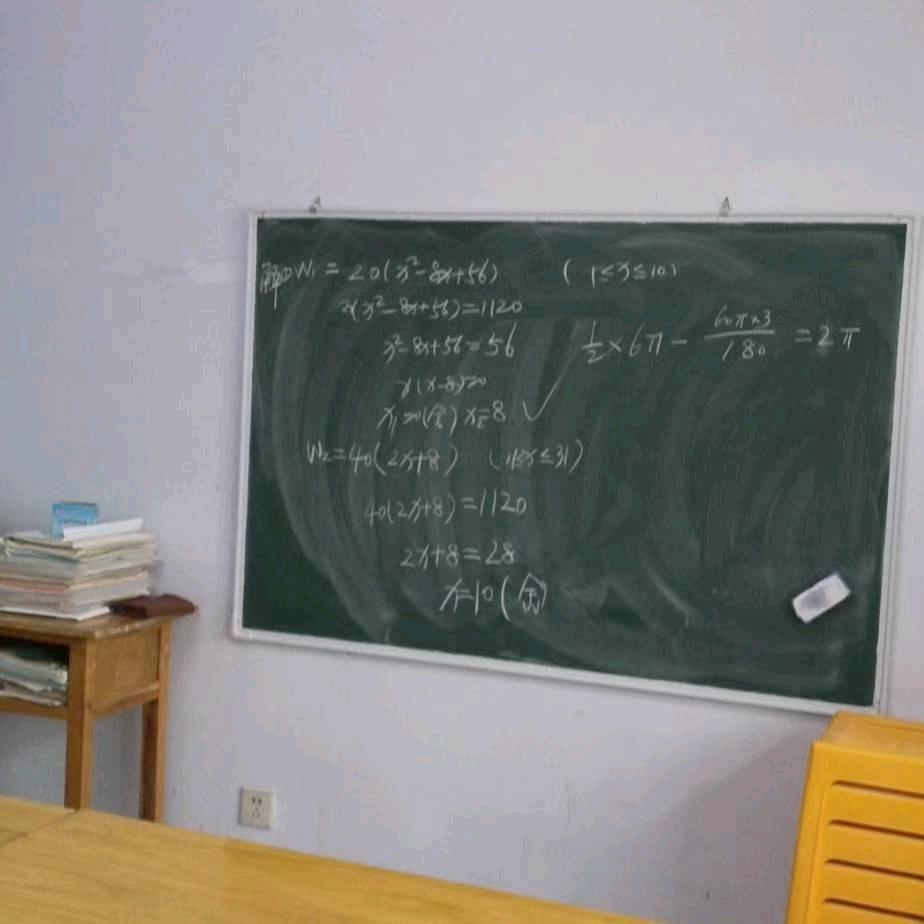 解:① W₁ = 20(x²-8x+56) (1≤x≤10)
20(x²-8x+56)=1120
x²-8x+56=56
x(x-8)=0
x₁=0(舍) x₂=8
W₂=40(2x+8) (11≤x≤31)
40(2x+8)=1120
2x+8=28
x=10(舍)
1/2×6π - 60π×3/180 =2π